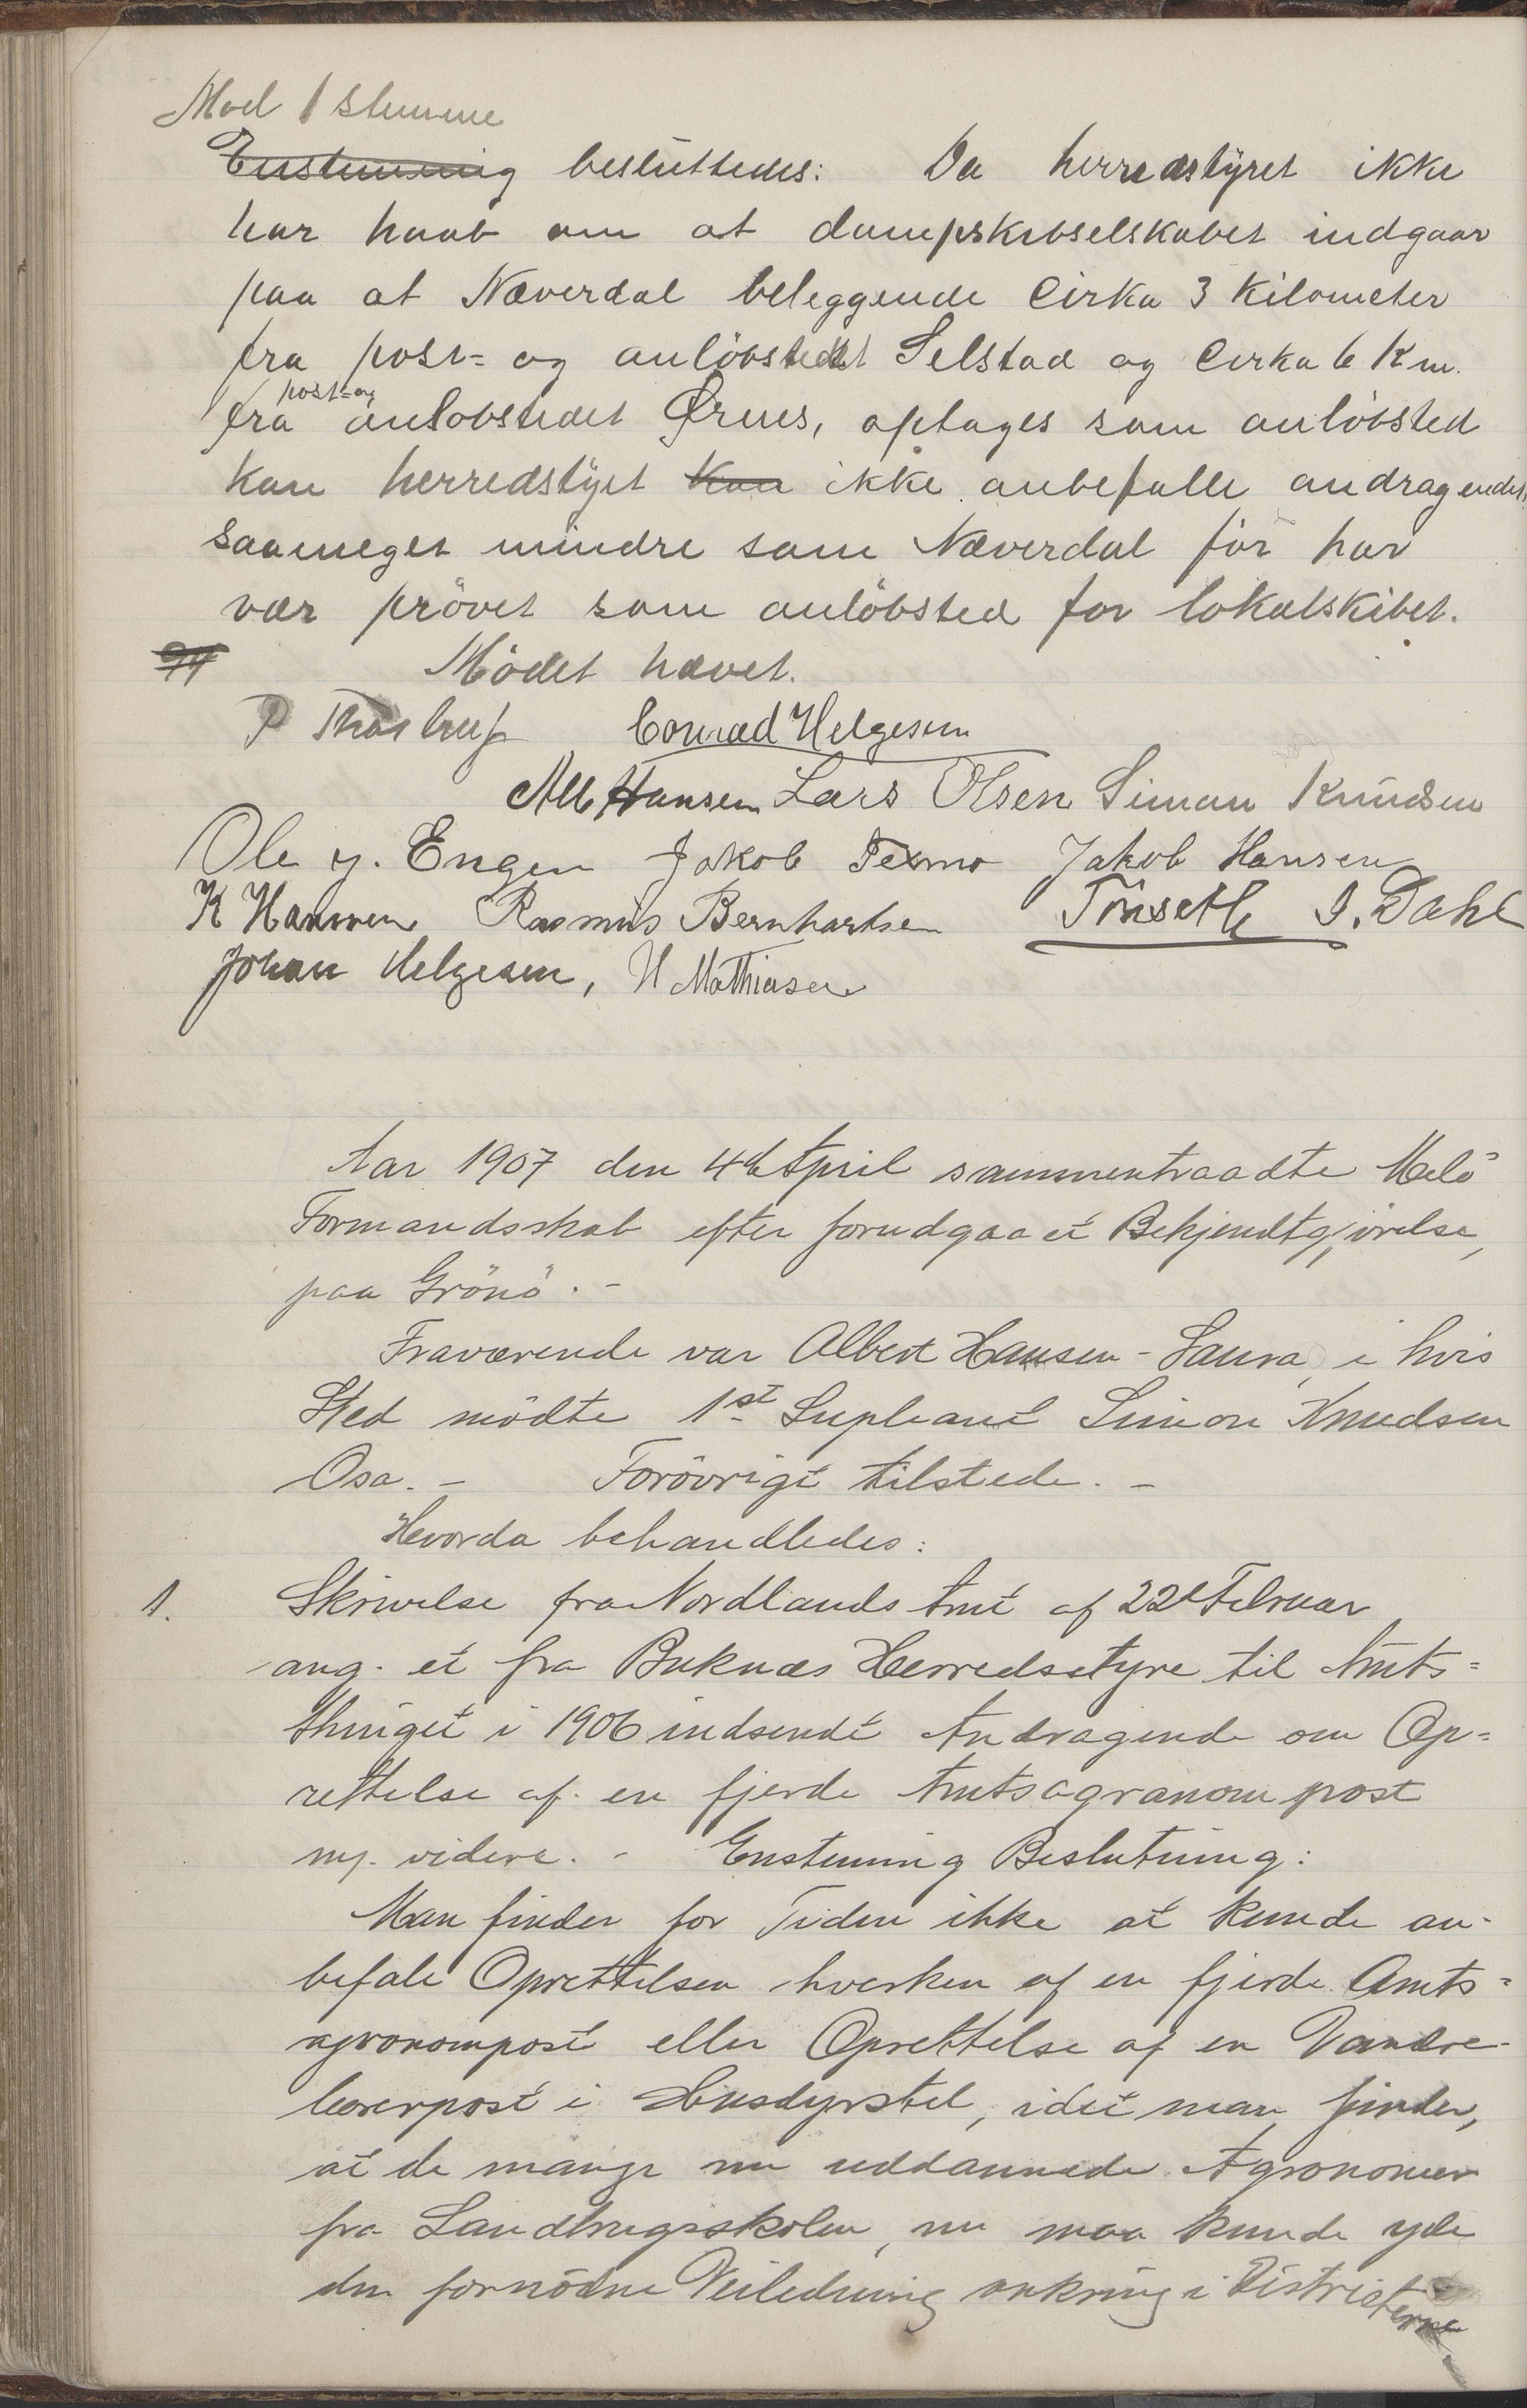 Mod 1 stemme
Enstemmig besluttedes: Da herredstyret ikke
har haab om at dampskibselskabet indgaar
paa at Næverdal beleggende cirka 3 kilometer
fra post- og anløbstedet Selstad og cirka 6 km.
post- og
fra anløbstedet Ørnes, optages som anløbsted
kan herredstyet kan ikke anbefalle andragendet,
saameget mindre som Næverdal før har
vær prøvet som anløbsted for lokalskibet.
94 Mödet hævet.
P Thastrup Conrad Helgesen
Alb Hansen Lars Olsen Simon Knudsen
Ole J. Engen Jakob Texmo Jakob Hansen
K Hansen Rasmus Bernhartsen Tönseth J. Dahl
Johan Helgesen, H Mathiasen
Aar 1907 den 4de April sammentraadte Melö
Formandsskab efter forudgaaet Bekjendtgjörelse,
paa Grönö. -
Fraværende var Albert Hansen - Saura, i hvis
Sted mödte 1st Supleant Simon Knudsen
Osa. - Forövrigt tilstede. -
Hvorda behandledes:
1. Skrivelse fra Nordlands Amt af 22de Februar
ang. et fra Buknæs Herredsstyre til Amts=
thinget i 1906 indsendt Andragende om Op=
rettelse af en fjerde Amtsagronompost
m. videre. - Enstemmig Beslutning:
Man finder for Tiden ikke at kunde an-
befale Oprettelsen hverken af en fjerde Amts=
agronompost eller Oprettelse af en Vandre-
lærerpost i Husdyrstel, idet man finder,
at de mange nu uddannede Agronomer
fra Landbrugsskolen, nu maa kunde yde
den fornödne Veiledning omkring i Distrikterne